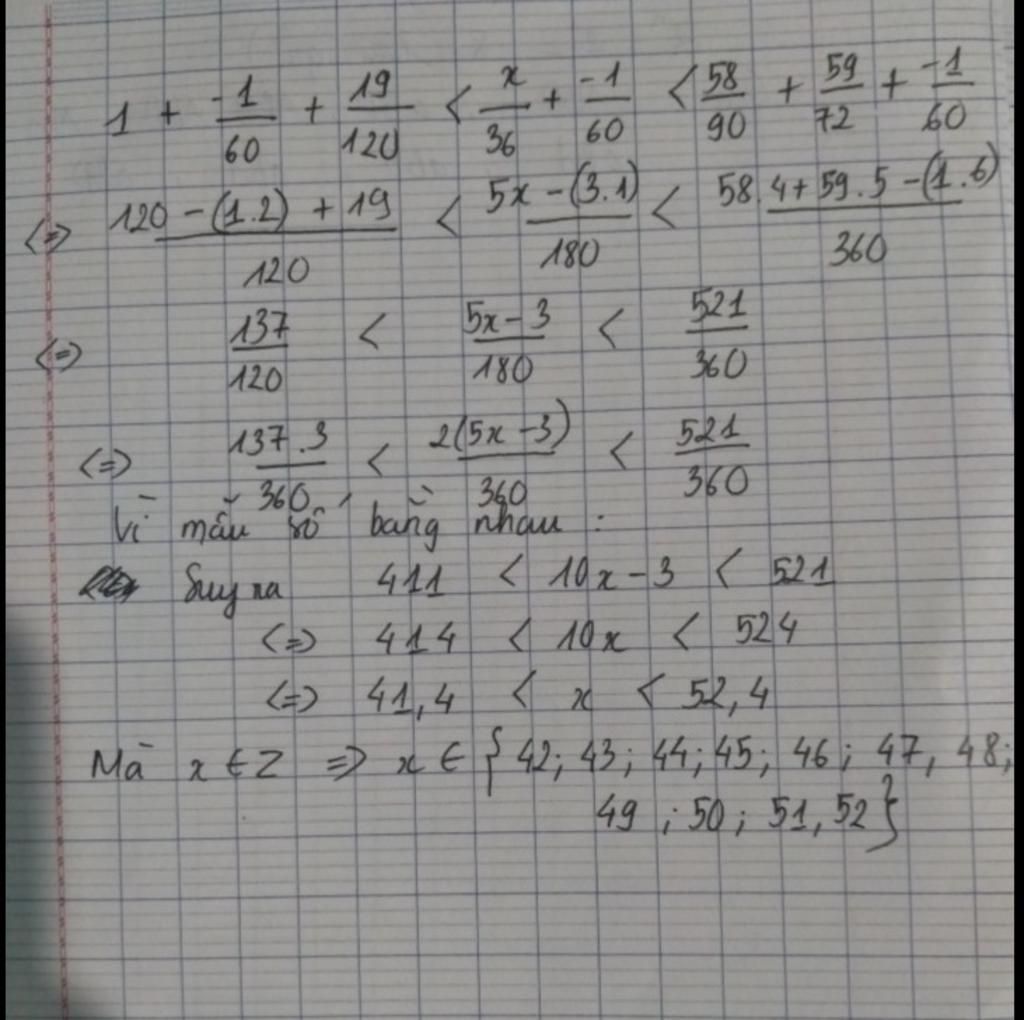 1 + -1/60 + 19/120 < x/36 + -1/60 < 58/90 + 59/72 + -1/60
<=> 120 - (1.2) + 19/120 < 5x - (3.1)/180 < 58.4 + 59.5 - (1.6)/360
<=> 137/120 < 5x - 3/180 < 521/360
<=> 137.3/360 < 2(5x - 3)/360 < 521/360
Vì mẫu số bằng nhau :
Suy ra 411 < 10x - 3 < 521
<=> 414 < 10x < 524
<=> 41,4 < x < 52,4
Mà x ∈ Z => x ∈ { 42; 43; 44; 45; 46; 47, 48;
49 ; 50; 51, 52}